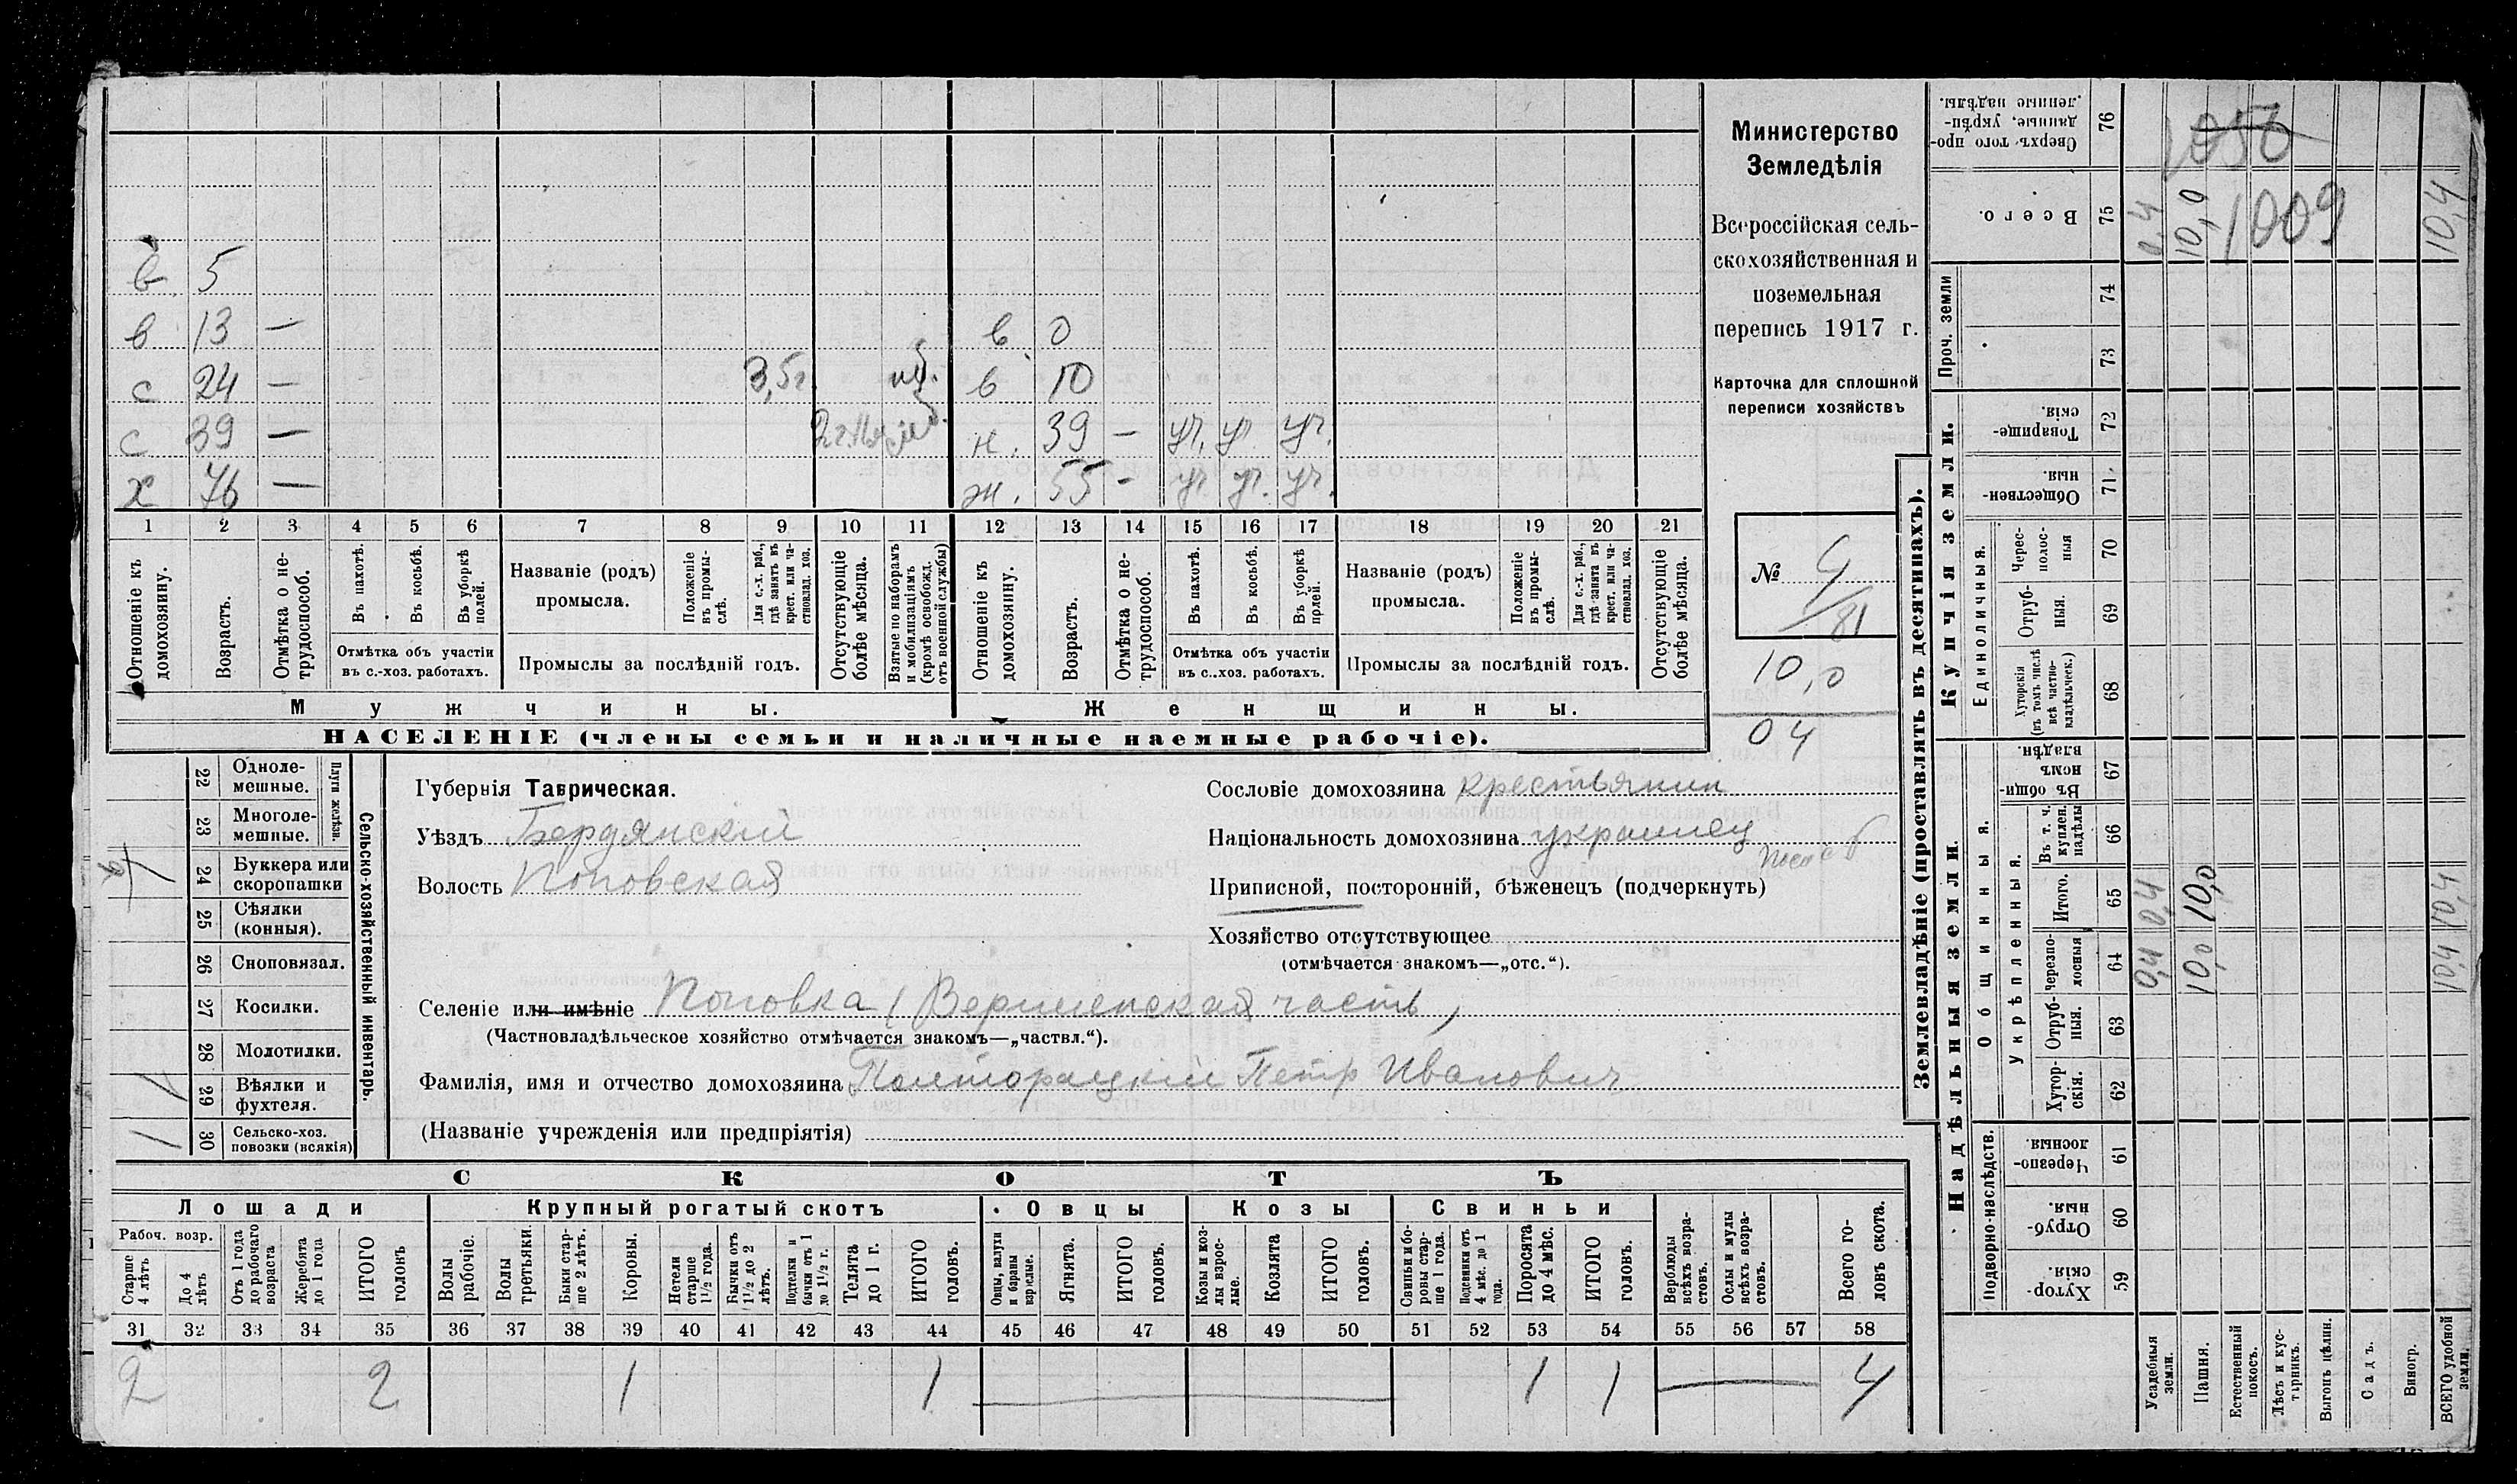 в 5
в 13 — в 0
с 24 — 3,5г. в 10
с 39 — н. 39 — уч. уч. уч.
х 76 — ж. 55 - уч уч. уч.
1 2 3 4 5 6 7 8 9 10 11 12 13 14 15 16 17 18 19 20 21
Отношеніе къ домохозяину.
Возрастъ.
Отмѣтка о не-трудоспособ.
Въ пахотѣ.
Въ косьбѣ.
Въ уборкѣ полей.
Отмѣтка объ участіи
въ с.-хоз. работахъ.
Названіе (родъ)
промысла.
Положеніе въ промы-слѣ.
Для с.-х. раб., гдѣ занятъ въ крест. или ча-стновлад. хоз.
Промыслы за послѣдній годъ.
Отсутствующіе болѣе мѣсяца.
Взятые по наборамъ и мобилизаціямъ (кромѣ освобожд. отъ военной службы)
Отношеніе къ домохозяину.
Возрастъ.
Отмѣтка о не-трудоспособ.
Въ пахотѣ.
Въ косьбѣ.
Въ уборкѣ полей.
Отмѣтка объ участіи
въ с.-хоз. работахъ.
Названіе (родъ)
промысла.
Положеніе въ промы-слѣ.
Для с.-х. раб., гдѣ занята въ крест. или ча-стновлад. хоз.
Промыслы за послѣдній годъ.
Отсутствующіе болѣе мѣсяца.
Мужчины. Женщины.
НАСЕЛЕНІЕ (члены семьи и наличные наемные рабочіе).
Министерство
Земледѣлія
Всероссійская сель-
скохозяйственная и
поземельная
перепись 1917 г.
Карточка для сплошной
переписи хозяйствъ
№
81
10,0
04
22 Одноле-мешные.
23 Многоле-мешные.
Плуги желѣзн.
24 Буккера или скоропашки
25 Сѣялки (конныя).
26 Сноповязал.
27 Косилки.
28 Молотилки.
29 Вѣялки и фухтеля. 1
30 Сельско-хоз. повозки (всякія) 1
Сельско-хозяйственный инвентарь.
Губернія Таврическая.
Уѣздъ Бердянскій
Волость Поповская
Сословіе домохозяина крестьянин
Національность домохозяина украинец
Приписной, посторонній, бѣженецъ (подчеркнуть)
Хозяйство отсутствующее
(отмѣчается знакомъ—„отс.“).
Селеніе или имѣніе Поповка (Вершенская часть)
(Частновладѣльческое хозяйство отмѣчается знакомъ—„частвл.“).
Фамилія, имя и отчество домохозяина Полторацкій Петр Иванович
(Названіе учрежденія или предпріятія)
СКОТЪ
Лошади Крупный рогатый скотъ Овцы Козы Свиньи
Рабоч. возр.
Старше 4 лѣтъ
До 4 лѣтъ
Отъ 1 года до рабочаго возраста
Жеребята до 1 года
ИТОГО головъ
Волы рабочіе.
Волы третьяки.
Быки стар-ше 2 лѣтъ.
Коровы.
Нетели старше 1½ года.
Бычки отъ 1½ до 2 лѣтъ.
Подтелки и бычки отъ 1 до 1½ г.
Телята до 1 г.
ИТОГО головъ.
Овцы, валухи и бараны взрослые.
Ягнята.
ИТОГО головъ.
Козы и коз-лы взрос-лые.
Козлята
ИТОГО головъ.
Свиньи и бо-ровы стар-ше 1 года.
Подсвинки отъ 4 мѣс. до 1 года.
Поросята до 4 мѣс.
ИТОГО головъ.
Верблюды всѣхъ возра-стовъ.
Ослы и мулы всѣхъ возра-стовъ.
Всего го-ловъ скота.
31 32 33 34 35 36 37 38 39 40 41 42 43 44 45 46 47 48 49 50 51 52 53 54 55 56 57 58
2 2 1 1 1 1 4
Землевладѣніе (проставлять въ десятинахъ).
Купчія земли.
Надѣльныя земли.
76 Сверхъ того про-данные, укрѣп-ленные надѣлы. 1050
75 Всего. 0,4 10,0 1009 10,4
Проч. земли
74
73
72 Товарище-скія.
71 Обществен-ныя.
Единоличныя.
70 Черес-полос-ныя
69 Отруб-ныя.
68 Хуторскія (въ томъ числѣ всѣ частно-владѣльческ.)
Общинныя.
67 Въ общин-номъ владѣн.
Укрѣпленныя.
66 Въ т. ч. куплен. надѣлы
65 Итого. 0,4 10,0 10,4
64 черезпо-лосныя 0,4 10,0 10,4
63 Отруб-ныя.
62 Хутор-скія.
Подворно-наслѣдств.
61 Черезпо-лосныя
60 Отруб-ныя.
59 Хутор-скія.
Усадебныя земли.
Пашня.
Естественный покосъ.
Лѣсъ и кус-тарникъ.
Выгонъ цѣлин.
Садъ.
Виногр.
ВСЕГО удобной земли.